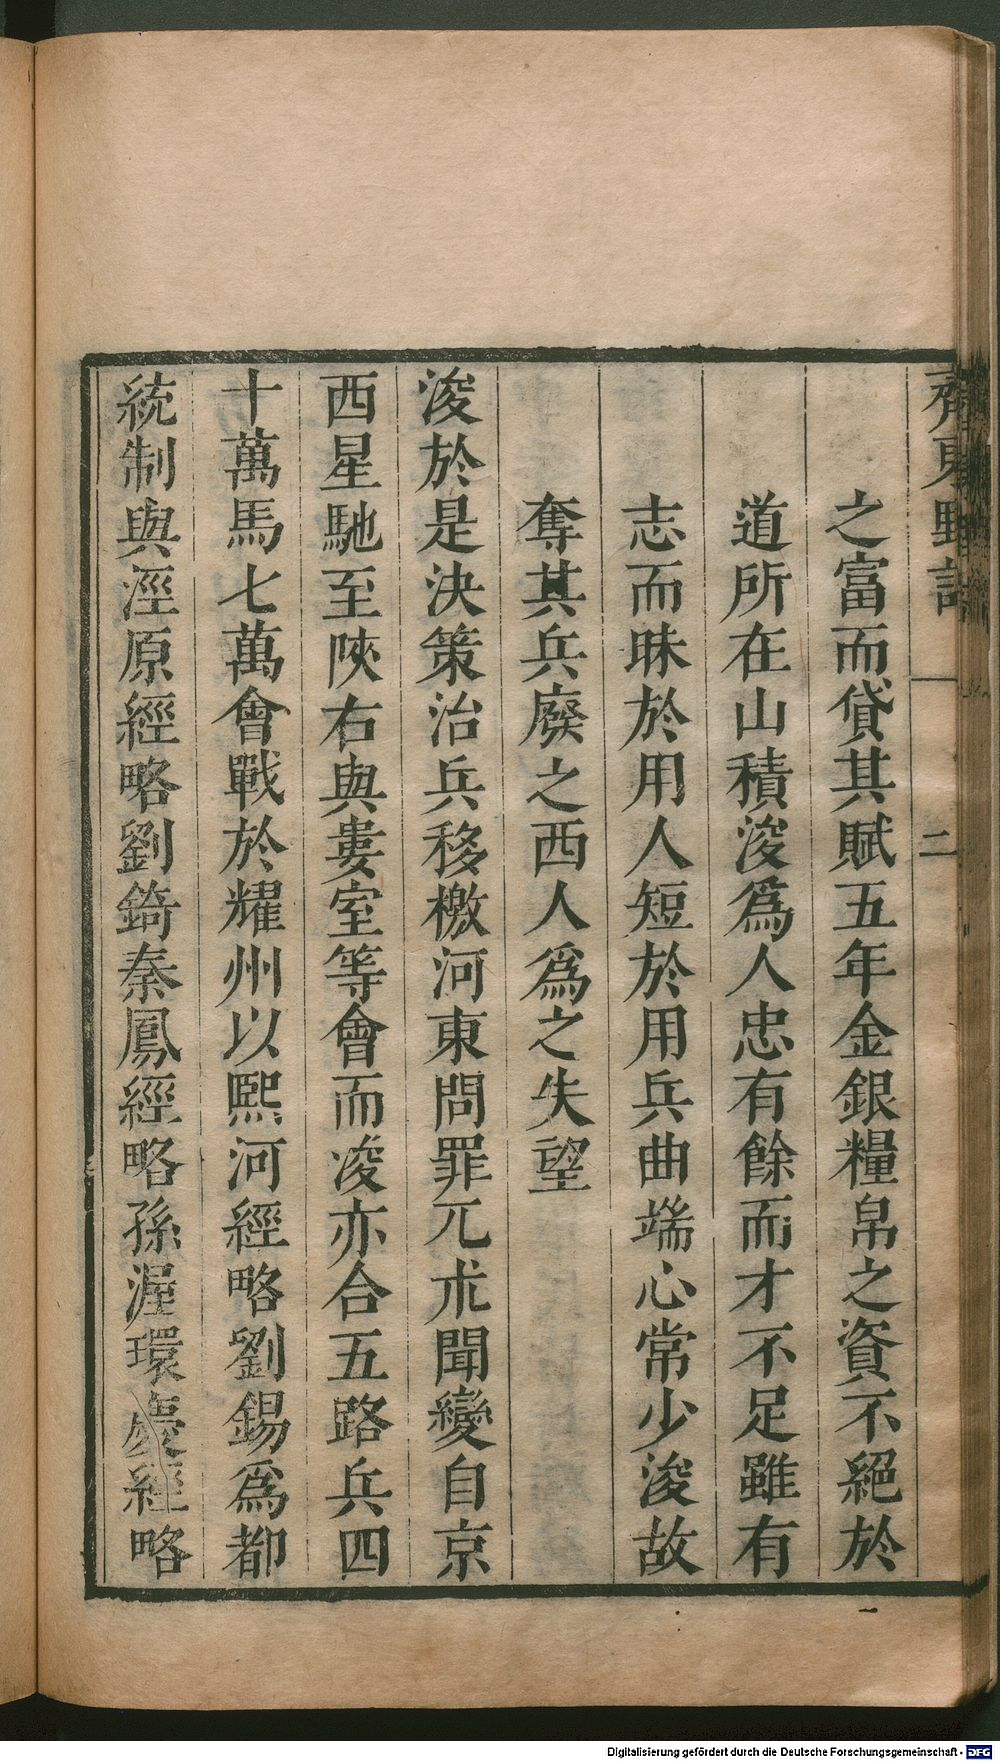 齊東野語
二
之富而貸其賦五年金銀糧帛之資不絕於
道所在山積浚爲人忠有餘而才不足雖有
志而昧於用人短於用兵曲端心常少浚故
奪其兵廢之西人爲之失望
浚於是決策治兵移檄河東問罪兀朮聞變自京
西星馳至陝右與婁室等會而浚亦合五路兵四
十萬馬七萬會戰於耀州以熙河經略劉錫爲都
統制與涇原經略劉錡秦鳳經略孫渥環慶經略
Digitalisierung gefördert durch die Deutsche Forschungsgemeinschaft - DFG